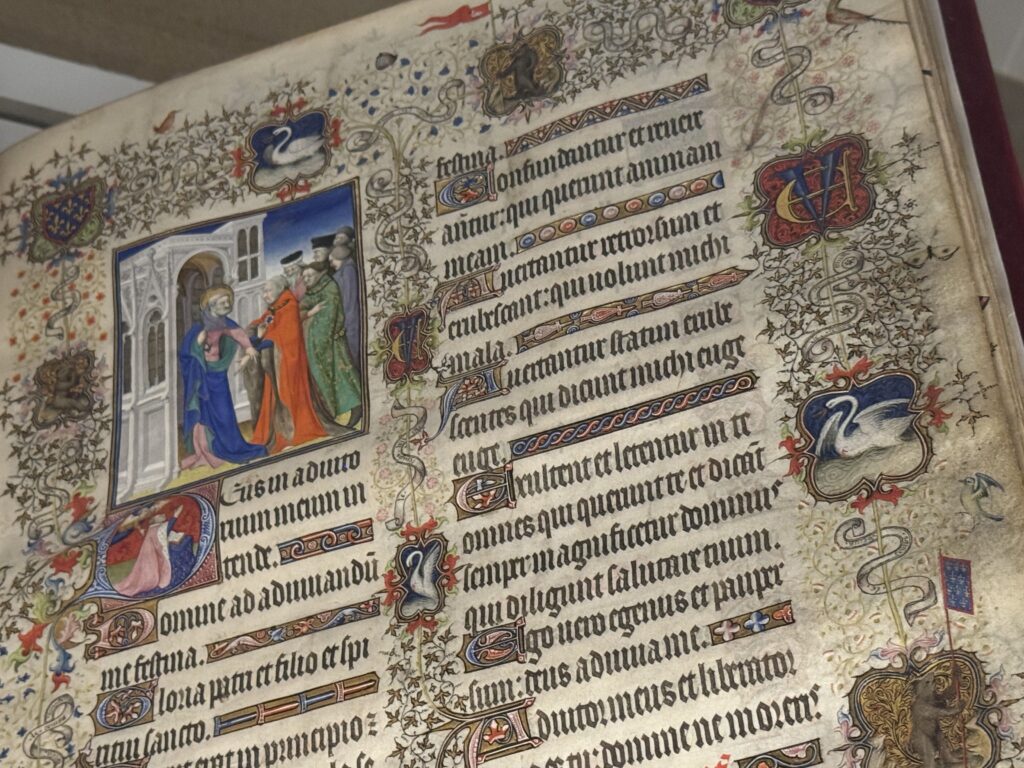 DEus in adiuto
rium meum in
tende.
Domine ad adiuuandū
me festina.
Gloria patri et filio et spi
ritui sancto.
erat in principio:
festina.
Confundantur et reuere
antur: qui querunt animam
meam.
Auertantur retrorsum et
erubescant: qui volunt michi
mala.
Auertantur statim erube
scentes qui dicunt michi euge
euge.
Exultent et letentur in te
omnes qui querunt te et dicāt
semper magnificetur dominus
qui diligunt salutare tuum.
Ego uero egenus et pauper
sum: deus adiuua me.
Adiutor meus et liberator
es tu: domine ne moreris.